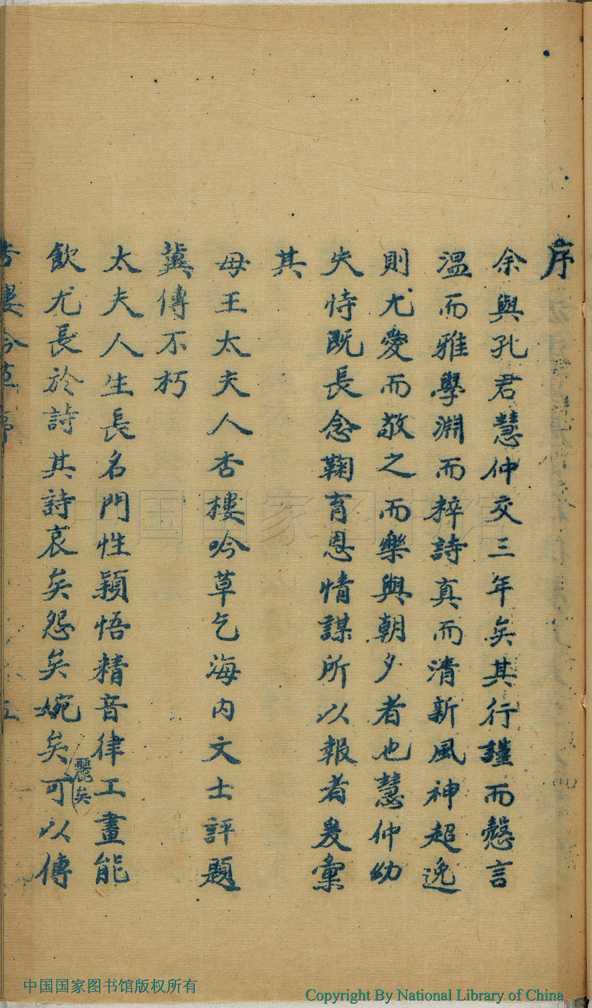 序
余與孔君慧仲交三年矣其行謹而慤言
溫而雅學淵而粹詩真而清新風神超逸
則尤愛而敬之而樂與朝夕者也慧仲幼
失恃既長念鞠育恩情謀所以報者爰彙
其
母王太夫人杏樓吟草乞海內文士評題
冀傳不朽
太夫人生長名門性穎悟精音律工畫能
飲尤長於詩其詩哀矣怨矣婉矣麗矣可以傳
杏樓吟草序
五
中国国家图书馆
中国国家图书馆版权所有
Copyright By National Library of China